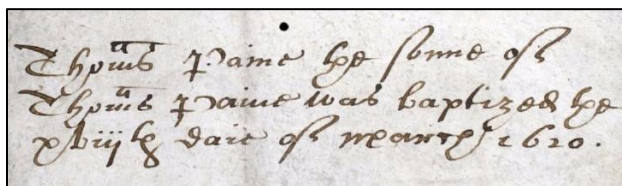 Thomas Paine the sonne of
Thomas Paine was baptized the
xviijth daie of March 1620.